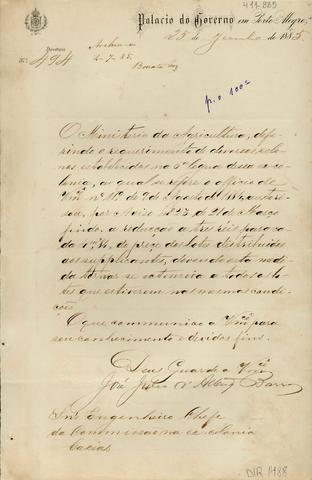 411-885
Palacio do Governo em Porto Alegre,
25 de Junho de 1885.
Directoria
N.º 494
Archive-se
2-7-85.
p. o 100-
O Ministerio da Agricultura, defe-
rindo o requerimento de diversos colo-
nos estabelecidos na 5ª legua dessa ex-co-
lonia, ao qual se refere o officio de
Vmcê nº 112 de 7 de Agosto de 1884, autori-
sou, por Aviso nº 23 de 21 de Março
findo, a reducção a tres réis por ca-
da do preço dos lotes distribuidos
aos supplicantes, devendo esta me-
dida tornar-se extensiva a todos os lo-
tes que estiverem nas mesmas condi-
ções.
O que communico a Vmcê para
seu conhecimento e devidos fins.
Deus Guarde a Vmcê
José Julio d'Albuq. Barros
Snr. Engenheiro Chefe
da Commissão na ex-colonia
Caxias
DIR 1488